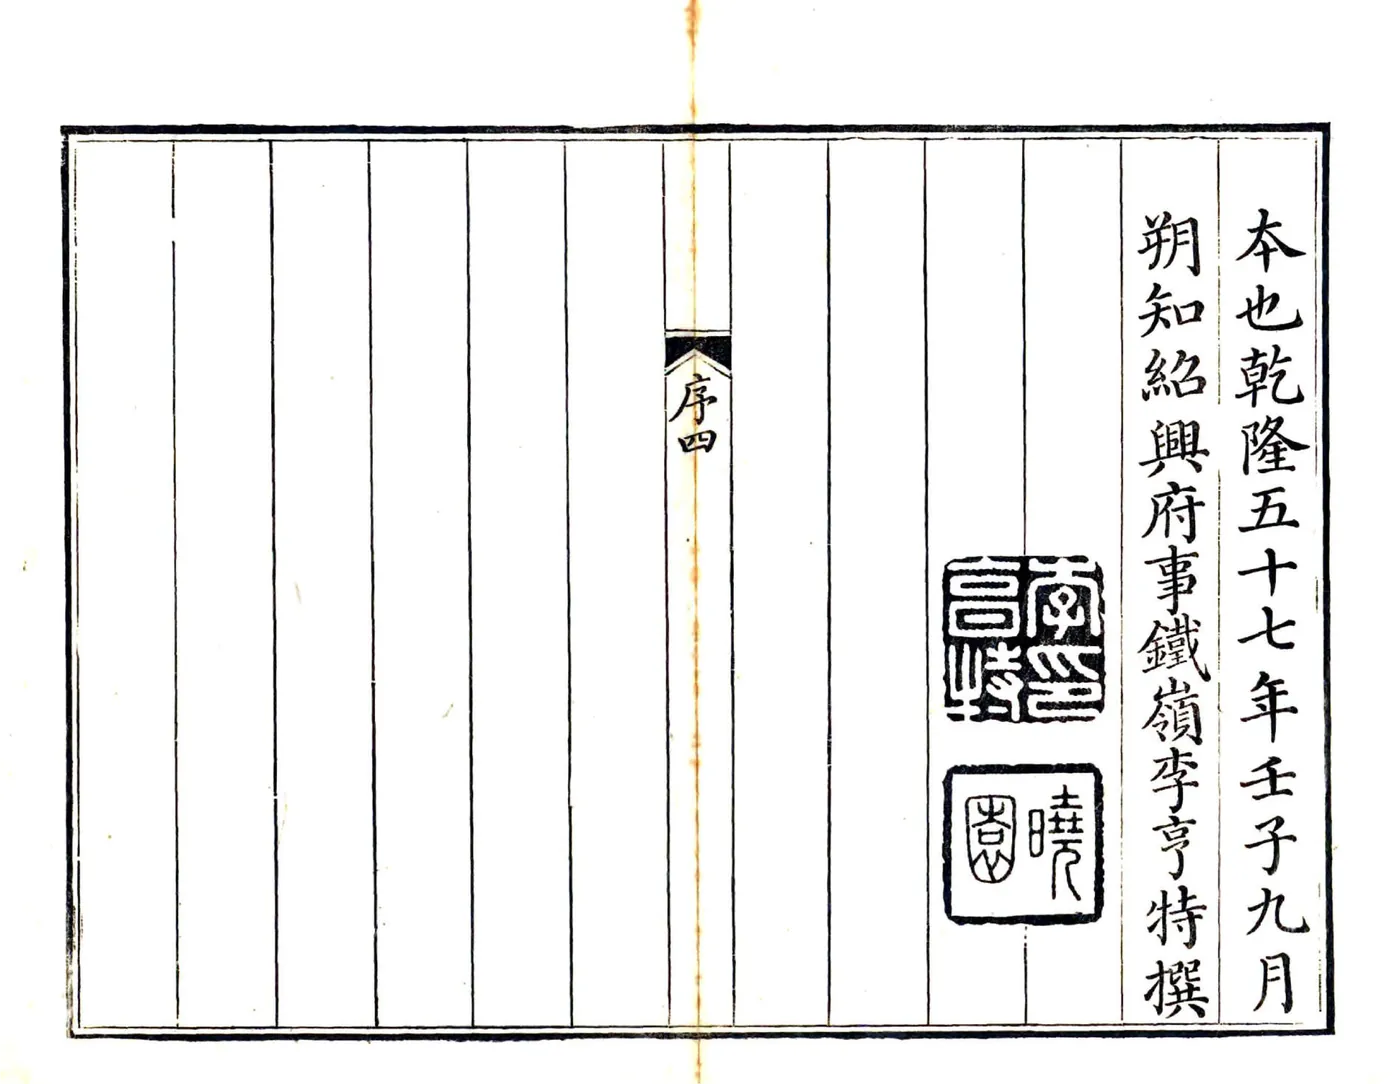 本也乾隆五十七年壬子九月
朔知紹興府事鐵嶺李亨特撰
李亨特印
曉園
序四